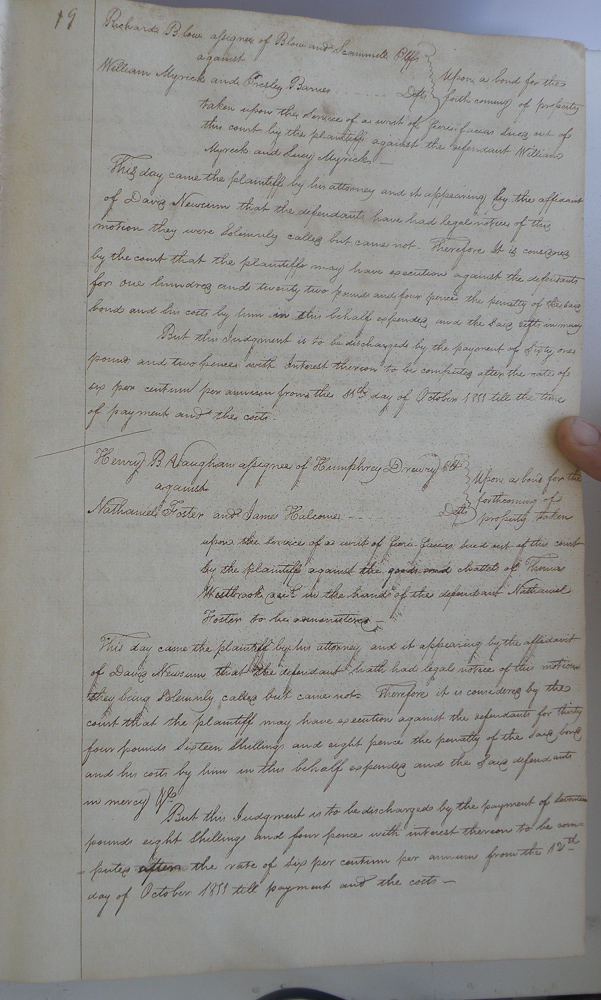 19
Richard Blow assignee of Blow and Scammell Pltfs
against
William Myrick and Presley Barnes Defts
Upon a bond for the
forthcoming of property
taken upon the service of a writ of fieri facias sued out of
this court by the plaintiff against the defendant William
Myrick and Lucy Myrick.—
This day came the plaintiff by his attorney and it appearing by the affidavit
of David Newsum that the defendants have had legal notice of this
motion they were solemnly called but came not. Therefore It is considered
by the court that the plaintiffs may have execution against the defendants
for one hundred and twenty two pounds and four pence the penalty of the said
bond and his costs by him in this behalf expended and the said defts in mercy
But this Judgment is to be discharged by the payment of Sixty one
pound and two pence with interest thereon to be computed after the rate of
six per centum per annum from the day of October 1811 till the time
of payment and the costs.
Henry B. Vaughan assignee of Humphrey Drewry Plt
against
Nathaniel Foster and James Halcome Defts
Upon a bond for the
forthcoming of
property taken
upon the service of a writ of fieri facias sued out of this court
by the plaintiff against the goods and chattels of Thomas
Westbrook decd in the hands of the defendant Nathaniel
Foster to be administered—
This day came the plaintiff by his attorney and it appearing by the affidavit
of David Newsum that the defendant hath had legal notice of this motion
they being solemnly called but came not. Therefore it is considered by the
court that the plaintiff may have execution against the defendants for thirty
four pounds Sixteen Shillings and eight pence the penalty of the said bond
and his costs by him in this behalf expended and the said defendants
in mercy &c
But this Judgment is to be discharged by the payment of Seventeen
pounds eight Shillings and four pence with interest thereon to be com-
puted after the rate of Six per centum per annum from the 12th
day of October 1811 till payment and the costs—